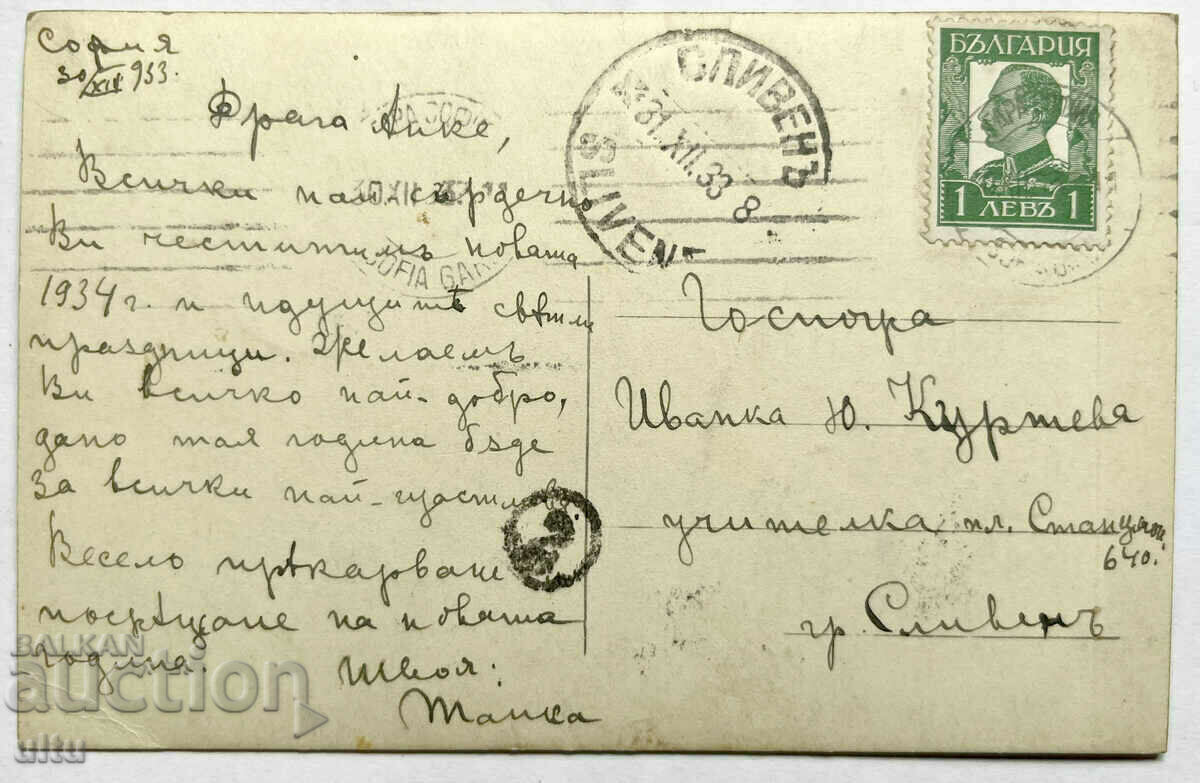 София
30/XII 933.
Драга Анке,
Всички най-сърдечно
Ви честитимъ новата
1934 г. и идущитѣ свѣтли
праздници. Желаемъ
Ви всичко най-добро,
дано тая година бѫде
за всички най-щастлива.
Весело прѣкарване и
посрѣщане на новата
година.
Твоя:
Танка
БЪЛГАРИЯ
1 ЛЕВЪ 1
СЛИВЕНЪ
31.XII.33 8
SLIVEN
SOFIA GARE
Госпожа
Иванка Ю. Куртева
учителка пл. Станцион.
640.
гр. Сливенъ
BALKAN
auction
ultu